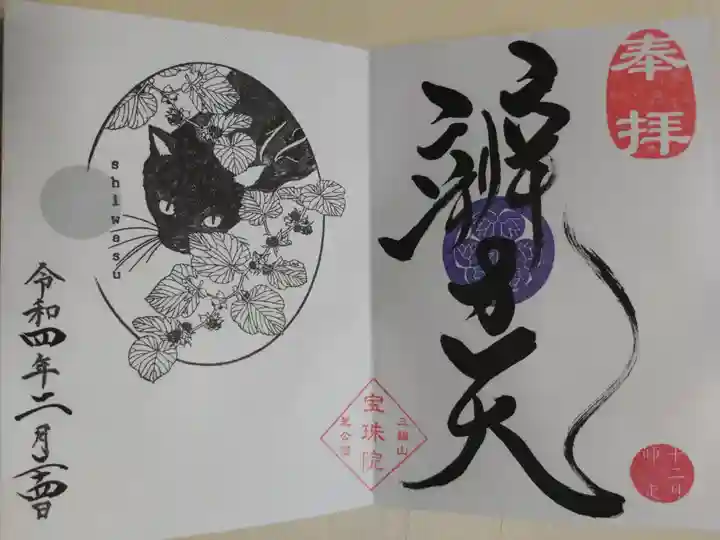 奉拝
辨才天
十二月
師走
三縁山
宝珠院
芝公園
shiwasu
令和四年二月四日